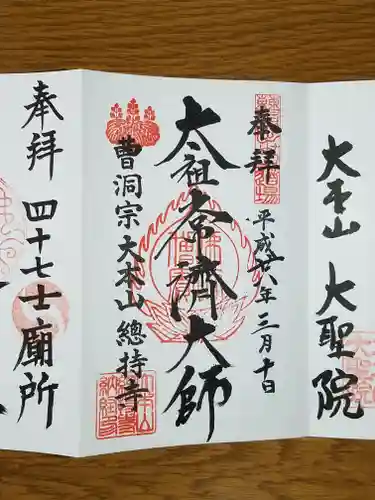 大本山 大聖院
奉拝
平成廿八年三月十日
太祖常濟大師
曹洞宗大本山總持寺
奉拝
四十七士廟所